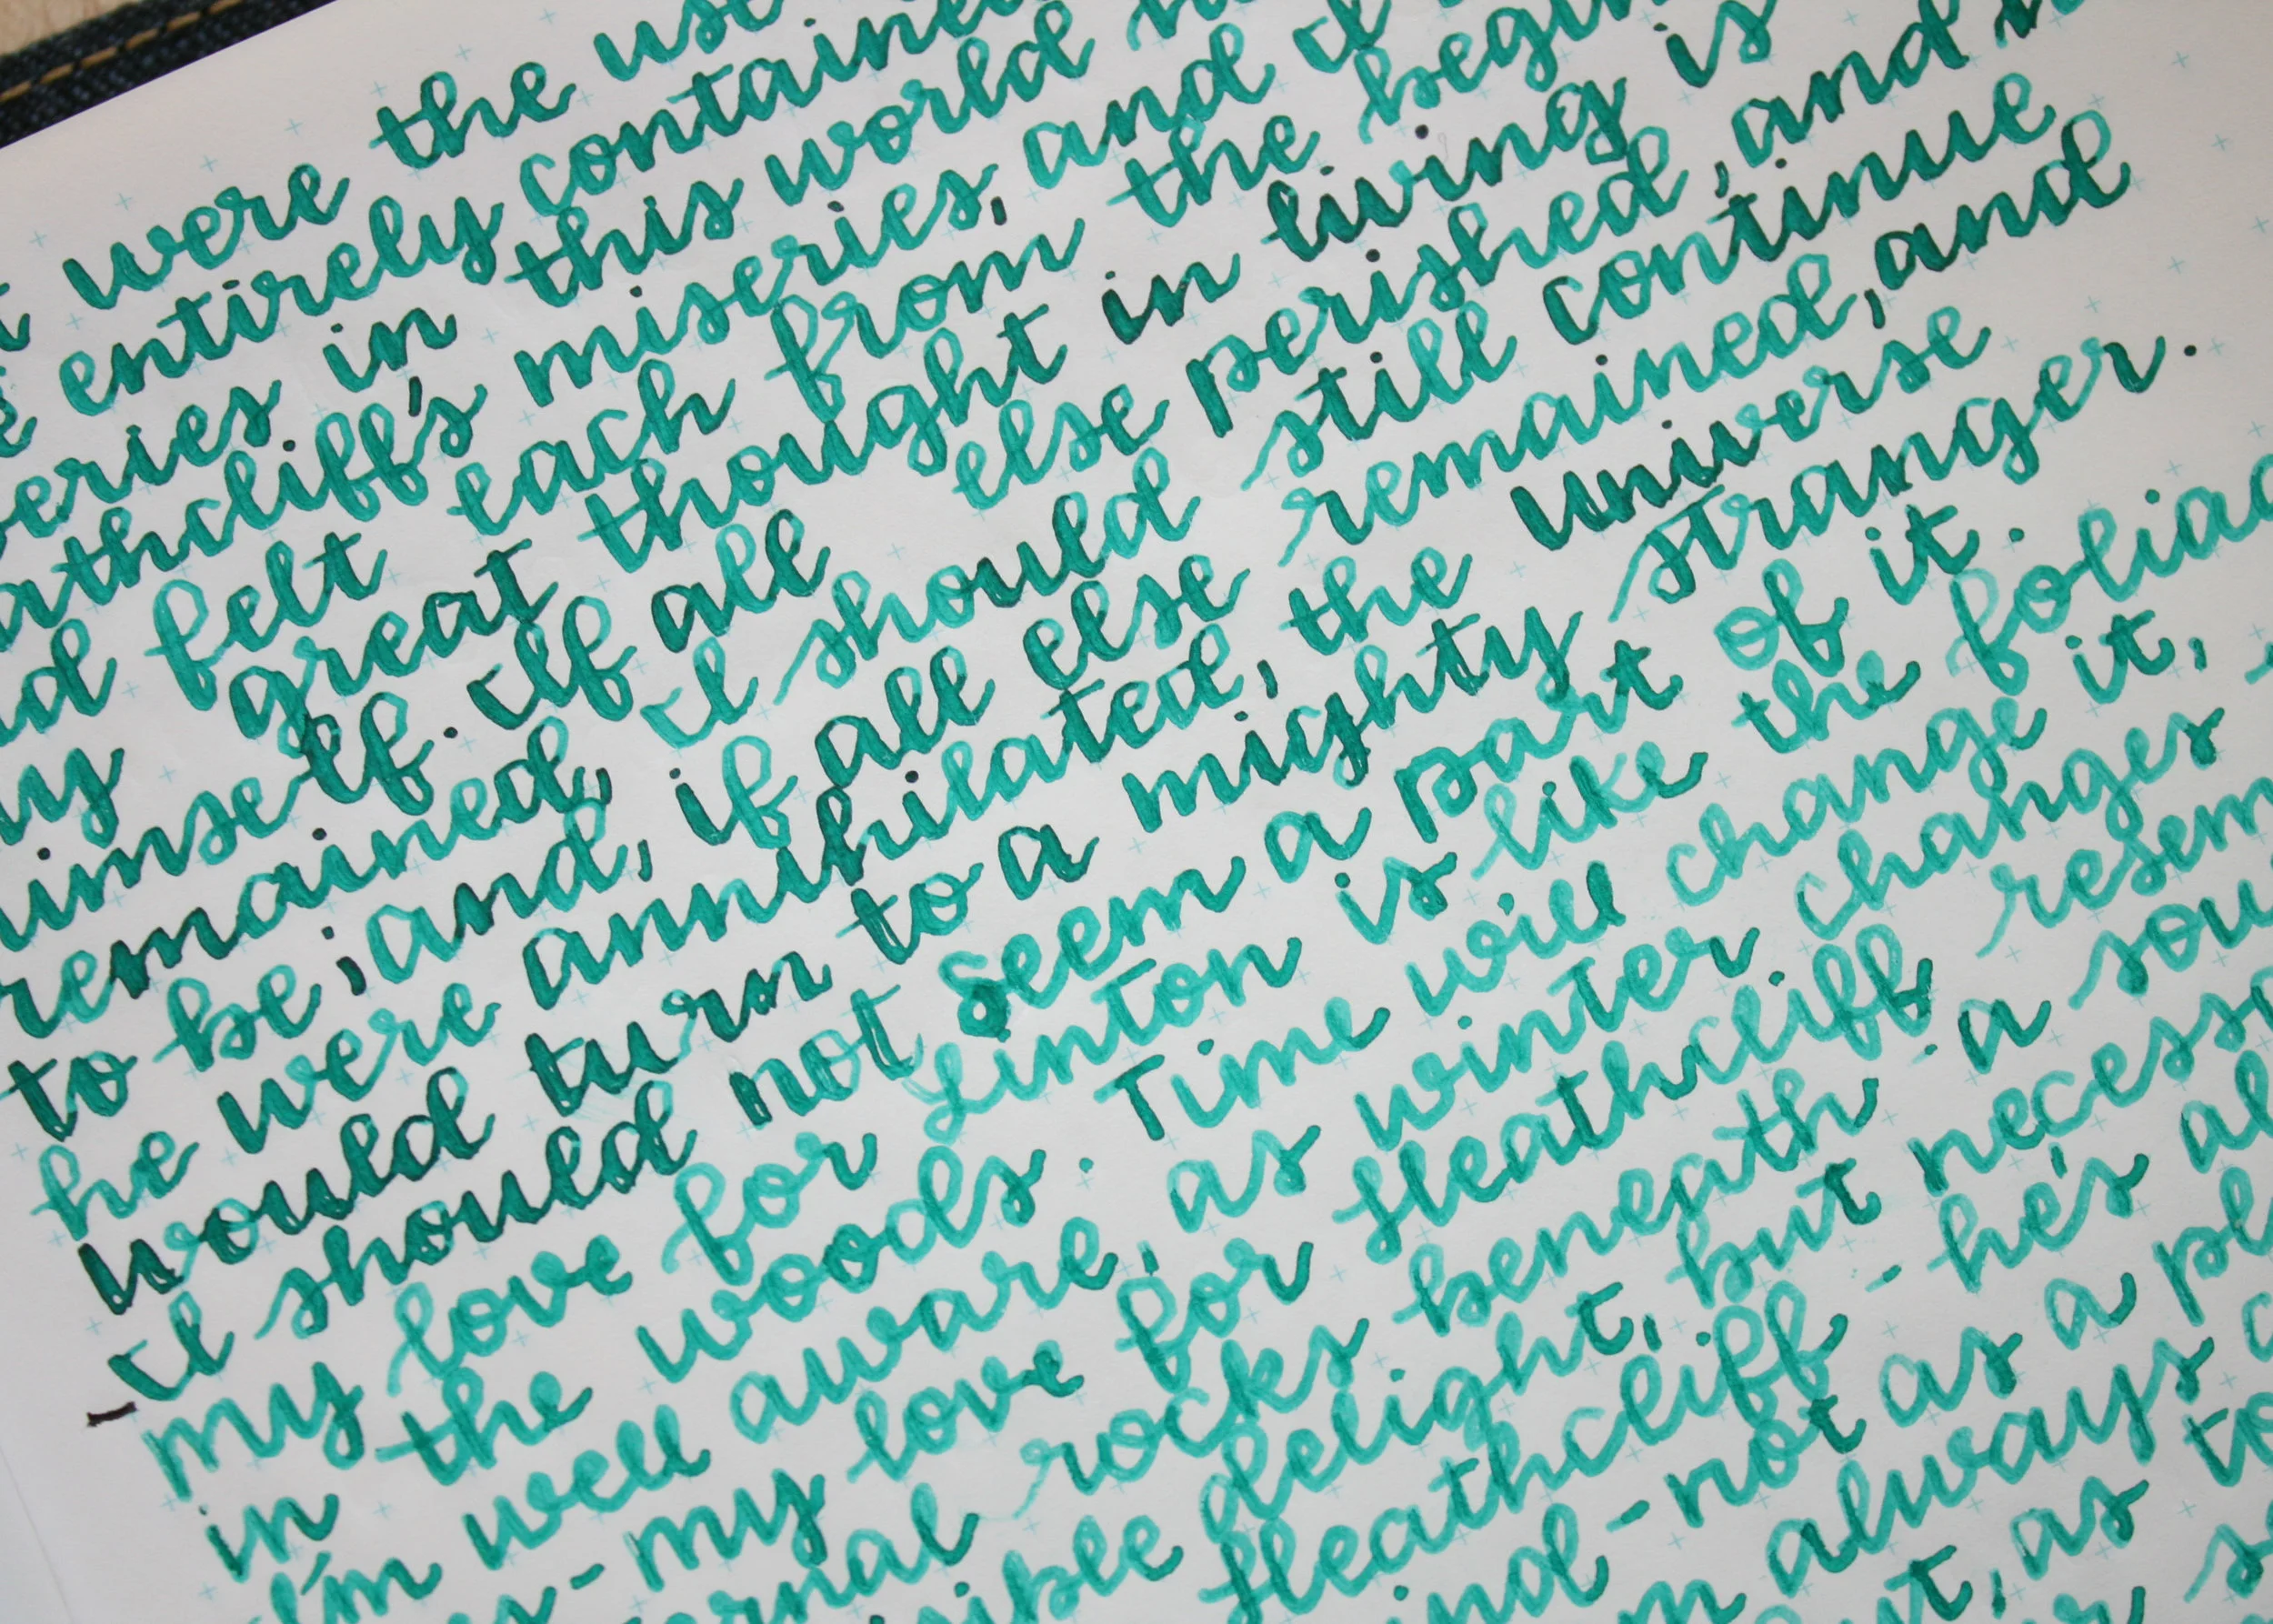 were the use
entirely containe
eries in this world
athcliff's miseries, and I
d felt each from the begin
my great thought in living is
himself. If all else perished, and
remained, I should still continue
to be; and, if all else remained, and
he were annihilated, the universe
would turn to a mighty stranger.
I should not seem a part of it.
my love for Linton is like the foliag
in the woods. Time will change it,
I'm well aware, as winter changes
my love for Heathcliff resem
ernal rocks beneath - a sou
sible delight, but necessa
Heathcliff - he's al
ind - not as a pl
m always
ut, as to